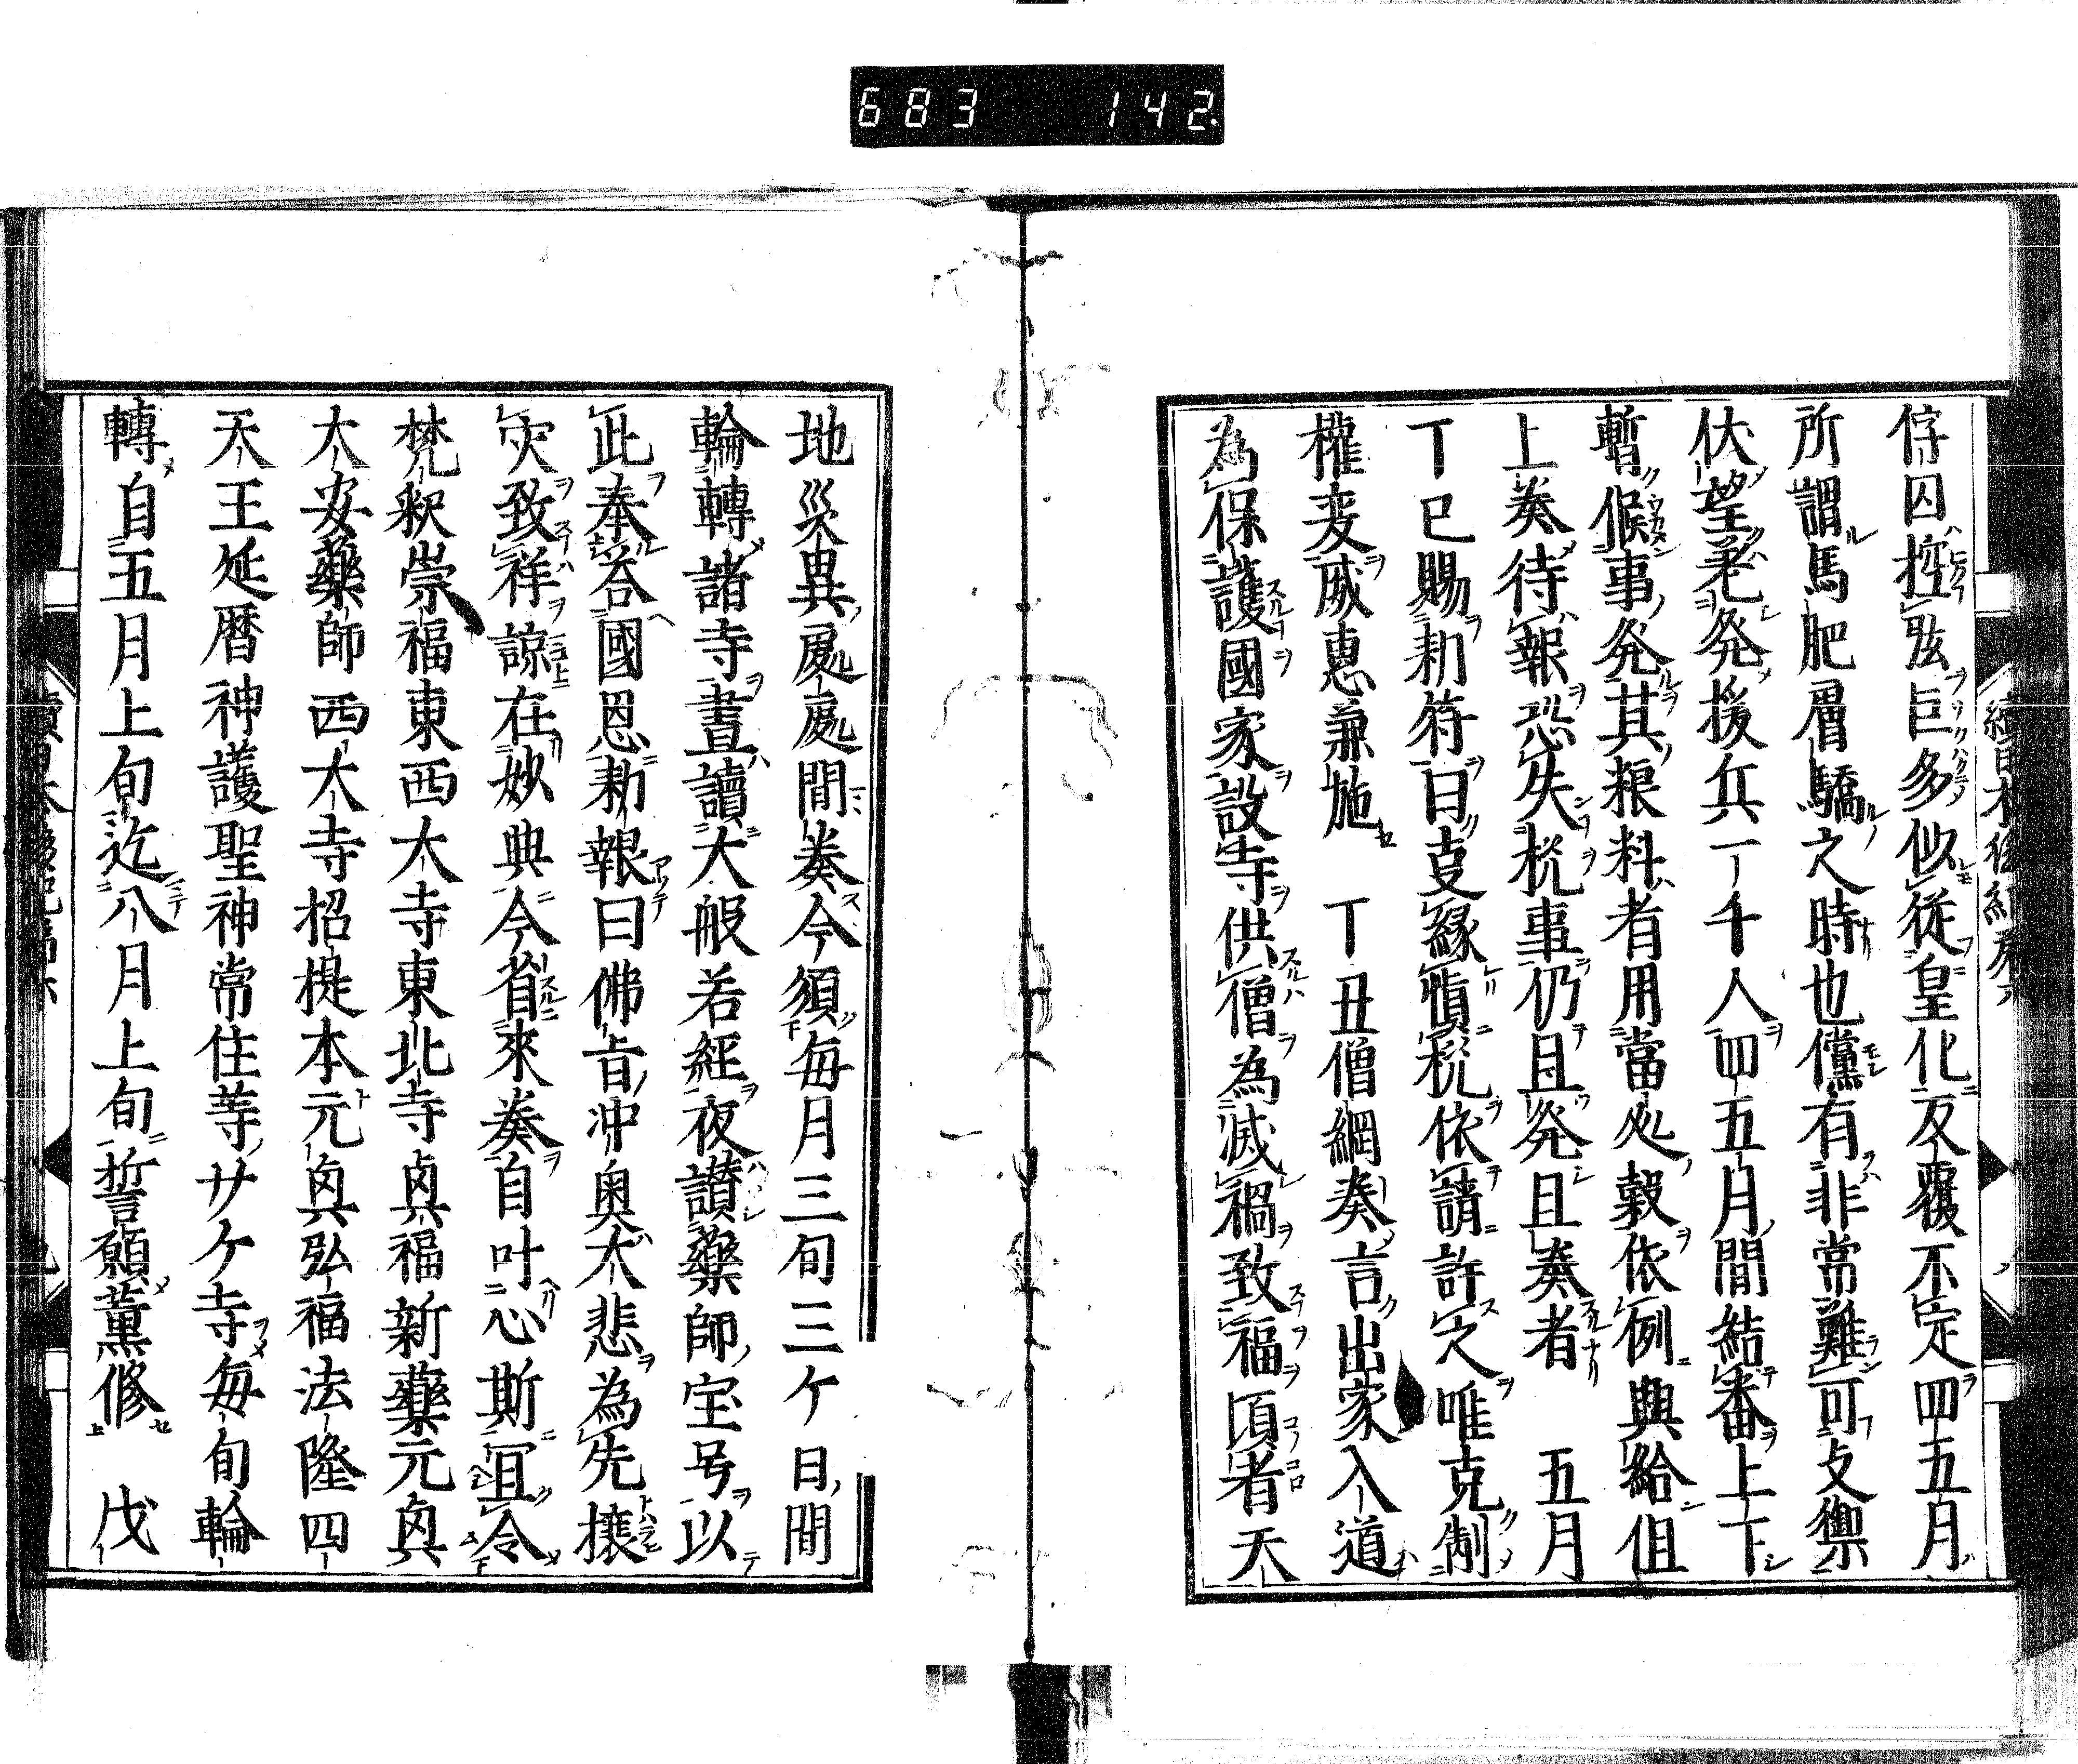 683 142
俘囚控弦巨多似從皇化反覆不定四五月
所謂馬肥虜驕之時也儻有非常難可支禦
伏望差発援兵一千人四五月間結番上下
暫候事発其粮料者用當処穀依例與給但
上奏待報恐失机事仍且発且奏者　五月
丁巳賜勅符曰夏緣慎税依請許之唯克制
權変威惠兼施　丁丑僧綱奏言出家入道
為保護國家設寺供僧為滅禍致福頃者天
地災異處處間奏今須毎月三旬三ケ日間
輪轉諸寺晝讀大般若經夜讃藥師宝号以
此奉答國恩勅報曰佛旨冲奥大悲為先攘
灾致祥諒在妙典今省來奏自叶心斯冝令
梵釈崇福東西大寺東北寺眞福新藥元眞
大安藥師西大寺招提本元眞弘福法隆四
天王延暦神護聖神常住等廿ケ寺毎旬輪
轉自五月上旬迄八月上旬誓願薫修　戊